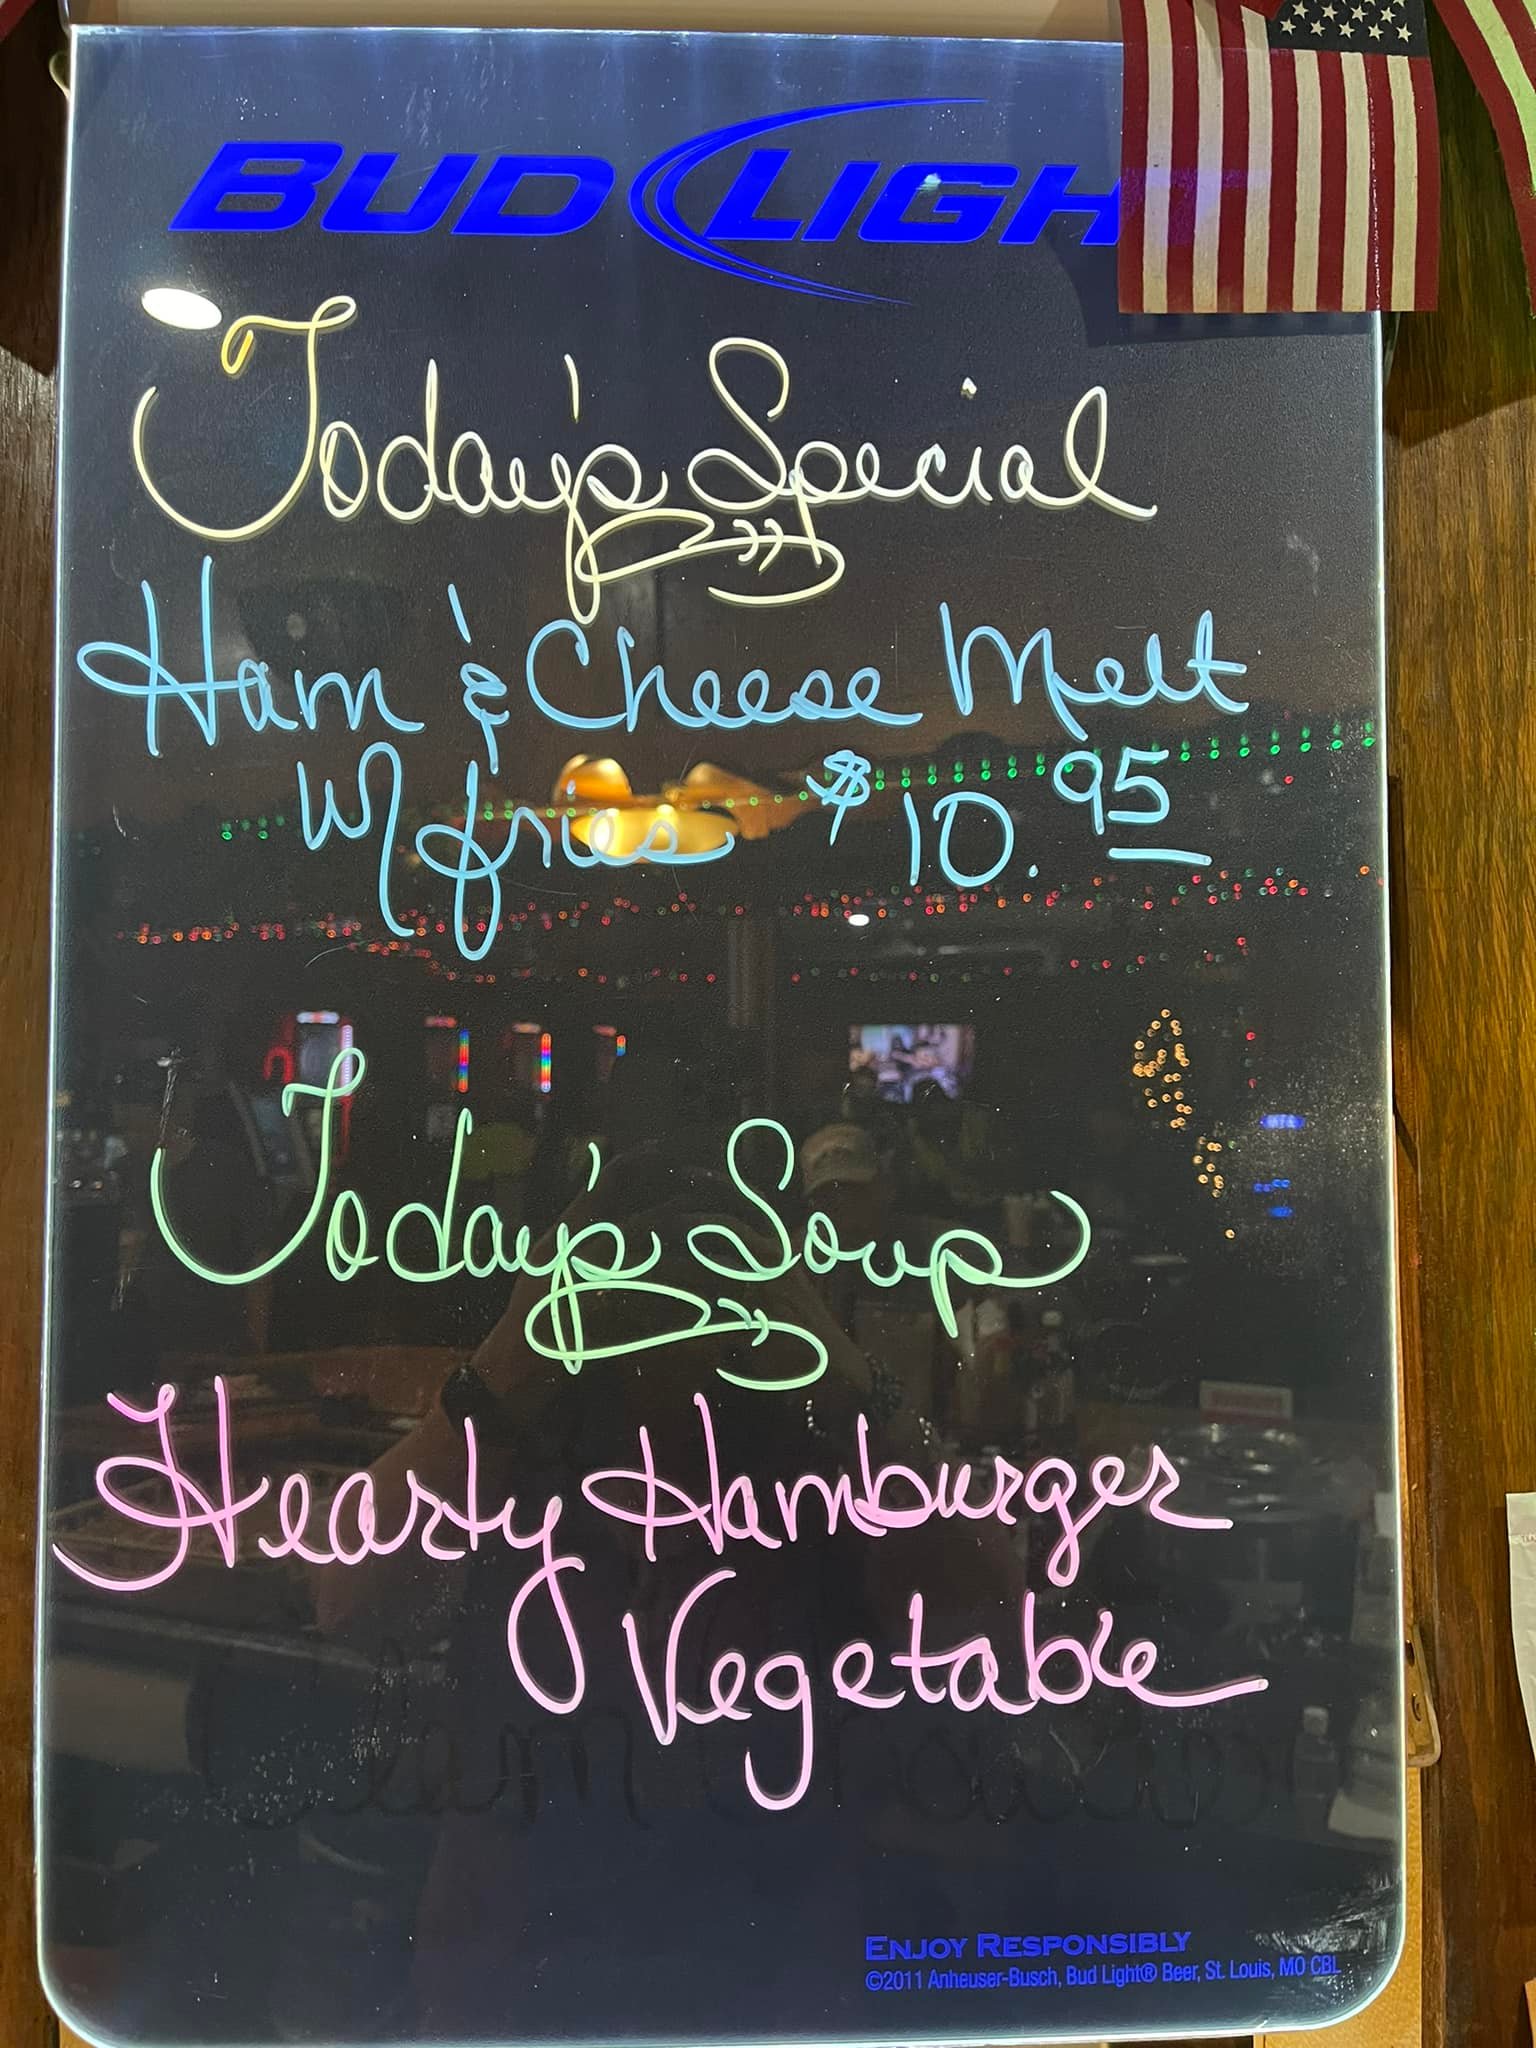 BUD LIGH
Today's Special
Ham & Cheese Melt
W/fries $10.95
Today's Soup
Hearty Hamburger
Vegetable
ENJOY RESPONSIBLY
©2011 Anheuser-Busch, Bud Light® Beer, St. Louis, MO CBL